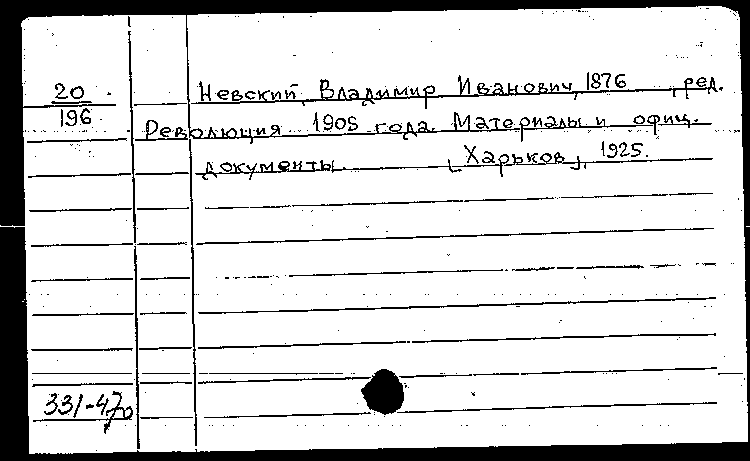 20
196
Невский, Владимир Иванович, 1876 , ред.
Революция 1905 года. Материалы и офиц.
документы. [Харьков], 1925.
331-47o